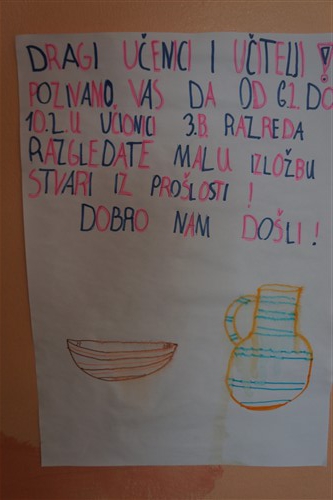 DRAGI UČENICI I UČITELJI!
POZIVAMO VAS DA OD 6.2. DO
10.2. U UČIONICI 3.B RAZREDA
RAZGLEDATE MALU IZLOŽBU
STVARI IZ PROŠLOSTI !
DOBRO NAM DOŠLI !